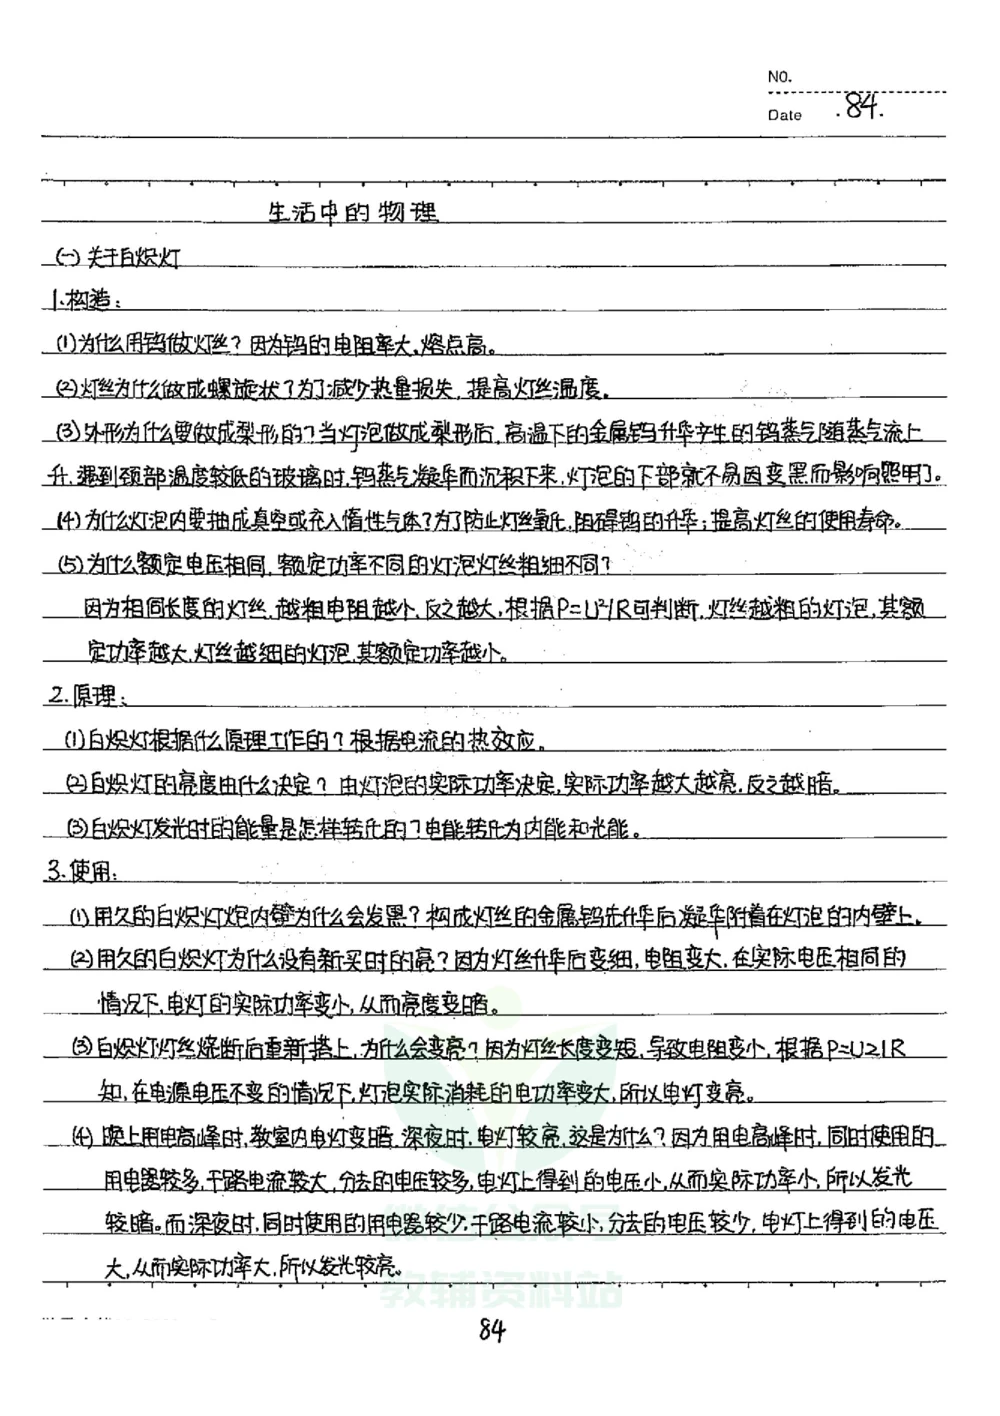 NO.
Date .84.
生活中的物理
(一)关于白炽灯
1.构造:
(1)为什么用钨做灯丝?因为钨的电阻率大,熔点高。
(2)灯丝为什么做成螺旋状?为了减少热量损失,提高灯丝温度。
(3)外形为什么要做成梨形的?当灯泡做成梨形后,高温下的金属钨升华产生的钨蒸气随蒸气流上
升,遇到颈部温度较低的玻璃时,钨蒸气凝华而沉积下来,灯泡的下部就不易因变黑而影响照明了。
(4)为什么灯泡内要抽成真空或充入惰性气体?为了防止灯丝氧化,阻碍钨的升华;提高灯丝的使用寿命。
(5)为什么额定电压相同,额定功率不同的灯泡灯丝粗细不同?
因为相同长度的灯丝,越粗电阻越小,反之越大,根据P=U²/R可判断,灯丝越粗的灯泡,其额
定功率越大,灯丝越细的灯泡,其额定功率越小。
2.原理:
(1)白炽灯根据什么原理工作的?根据电流的热效应。
(2)白炽灯的亮度由什么决定?由灯泡的实际功率决定,实际功率越大越亮,反之越暗。
(3)白炽灯发光时的能量是怎样转化的?电能转化为内能和光能。
3.使用:
(1)用久的白炽灯炮内壁为什么会发黑?构成灯丝的金属钨先升华后凝华附着在灯泡的内壁上。
(2)用久的白炽灯为什么没有新买时的亮?因为灯丝升华后变细,电阻变大,在实际电压相同的
情况下,电灯的实际功率变小,从而亮度变暗。
(3)白炽灯灯丝烧断后重新搭上,为什么会变亮?因为灯丝长度变短,导致电阻变小,根据P=U2/R
知,在电源电压不变的情况下,灯泡实际消耗的电功率变大,所以电灯变亮。
(4)晚上用电高峰时,教室内电灯变暗,深夜时,电灯较亮,这是为什么?因为用电高峰时,同时使用的
用电器较多,干路电流较大,分去的电压较多,电灯上得到的电压小,从而实际功率小,所以发光
较暗。而深夜时,同时使用的用电器较少,干路电流较小,分去的电压较少,电灯上得到的电压
大,从而实际功率大,所以发光较亮。
教辅资料站
84